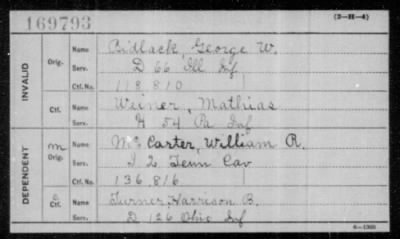 169793
(3-H-4)
INVALID
Orig.
Name Bidlack, George W.
Serv. D 66 Ill Inf
Ctf. No. 118 810
Ctf.
Name Weiner, Mathias
Serv. H 54 Pa Inf
DEPENDENT
m Orig.
Name Mc Carter, William R.
Serv. I 2 Tenn Cav
Ctf. No. 136,816
Ctf.
Name Turner, Harrison B.
Serv. D 126 Ohio Inf